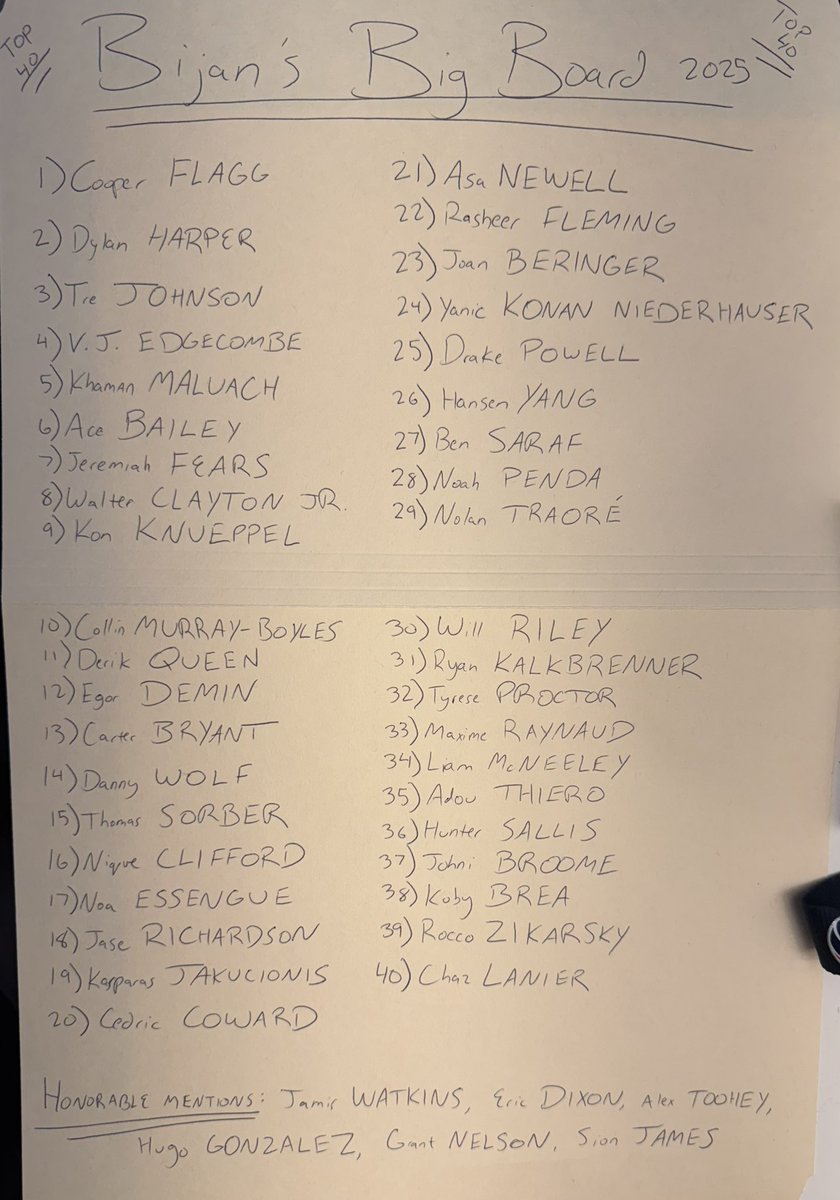 TOP 40//
Bijan's Big Board 2025
TOP 40//
1) Cooper FLAGG
2) Dylan HARPER
3) Tre JOHNSON
4) V.J. EDGECOMBE
5) Khaman MALUACH
6) Ace BAILEY
7) Jeremiah FEARS
8) Walter CLAYTON JR.
9) Kon KNUEPPEL
10) Collin MURRAY-BOYLES
11) Derik QUEEN
12) Egor DEMIN
13) Carter BRYANT
14) Danny WOLF
15) Thomas SORBER
16) Nique CLIFFORD
17) Noa ESSENGUE
18) Jase RICHARDSON
19) Kasparas JAKUCIONIS
20) Cedric COWARD
21) Asa NEWELL
22) Rasheer FLEMING
23) Joan BERINGER
24) Yanic KONAN NIEDERHAUSER
25) Drake POWELL
26) Hansen YANG
27) Ben SARAF
28) Noah PENDA
29) Nolan TRAORÉ
30) Will RILEY
31) Ryan KALKBRENNER
32) Tyrese PROCTOR
33) Maxime RAYNAUD
34) Liam McNEELEY
35) Adou THIERO
36) Hunter SALLIS
37) Johni BROOME
38) Koby BREA
39) Rocco ZIKARSKY
40) Chaz LANIER
HONORABLE MENTIONS: Jamir WATKINS, Eric DIXON, Alex TOOHEY,
Hugo GONZALEZ, Grant NELSON, Sion JAMES